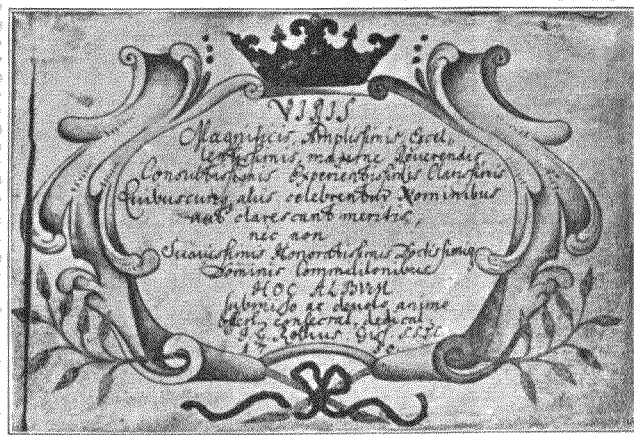 VIRIS
Magnificis, Amplissimis, Excel,
lentissimis, maxime Reverendis,
Consultissimis Experientissimis Clarissimis
Quibuscunq, aliis celebrentur Nominibus
aut clarescant meritis,
nec non
Suavissimis Honoratissimis Doctissimisq
Dominis Commilitonibus
HOC ALBUM
submisso ac devoto animo
offert consecrat dedicat